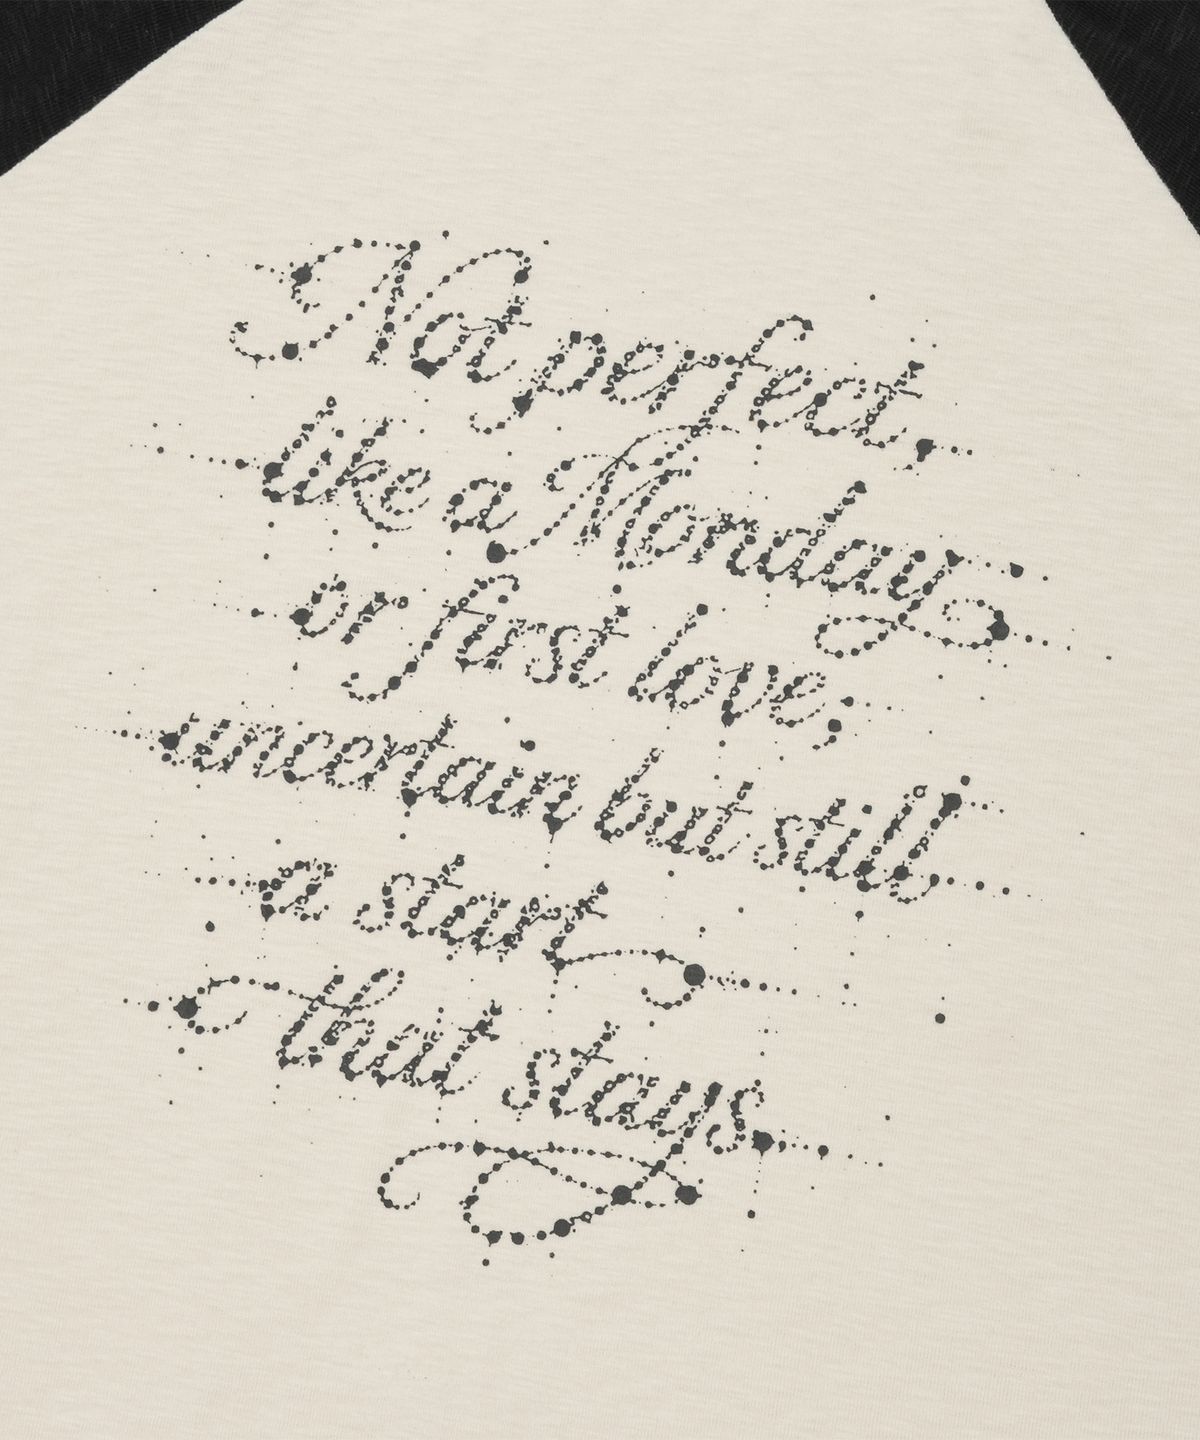 Not perfect,
like a Monday
or first love;
uncertain but still
a start
that stays